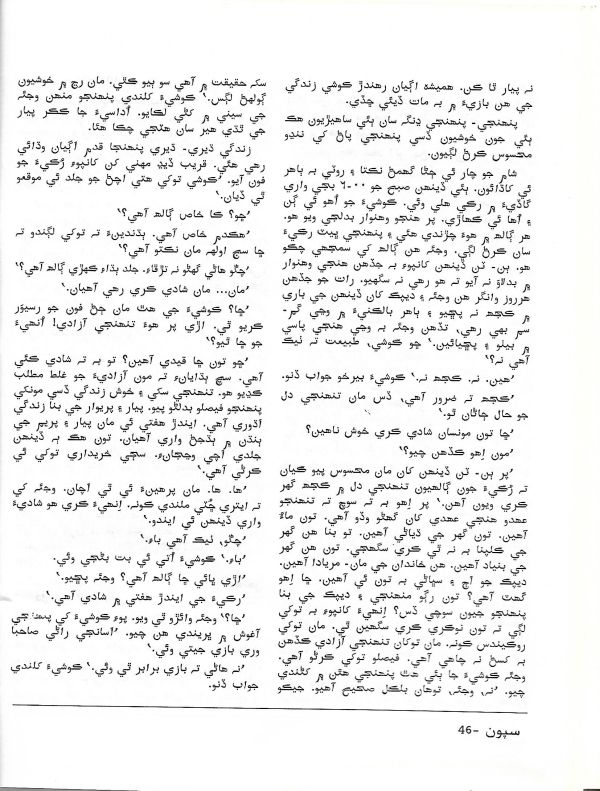 نہ پيار ٿا ڪن. هميشه اڳيان رهندڙ ڪوشي زندگي
جي هن بازيءَ ۾ بہ مات ڏيئي ڇڏي.
پنهنجي- پنهنجي ڍنگہ سان ٻئي ساهيڙيون هڪ
ٻئي جون خوشيون ڏسي پنهنجي پاڻ کي ننڍو
محسوس ڪرڻ لڳيون.
شام جو چار ئي ڄڻا گهمڻ نڪتا ۽ روٽي بہ ٻاهر
ئي کاڌائون. ٻئي ڏينهن صبح جو ٠٠-٦ بجي واري
گاڏيءَ ۾ رکي هلي وئي. ڪوشيءَ جو اهو ئي ڳن
۽ اُها ئي ڪهاڙي. پر هنجو وهنوار بدلجي ويو هو.
هر ڳالهہ ۾ هوءَ چڙندي هئي ۽ پنهنجي پيٽ رکيءَ
سان ڪرڻ لڳي. وجئہ هن ڳالهہ کي سمجهي چڪو
هو. ٻن- ٽن ڏينهن کانپوءِ بہ جڏهن هنجي وهنوار
۾ بدلاؤ نہ آيو تہ هو رهي نہ سگهيو. رات جو جڏهن
هرروز وانگر هن وجئہ ۽ ديپڪ کان ڏينهن جي باري
۾ ڪجهہ نہ پڇيو ۽ ٻاهر بالڪنيءَ ۾ وڃي گم-
سم بهي رهي، تڏهن وجئہ بہ وڃي هنجي پاسي
۾ بيٺو ۽ پڇيائين. ‘ڇو ڪوشي، طبيعت تہ ٺيڪ
آهي نہ؟’
‘هين. نہ. ڪجهہ نہ.’ ڪوشيءَ بيرخو جواب ڏنو.
‘ڪجهہ تہ ضرور آهي، ڏس مان تنهنجي دل
جو حال ڄاڻان ٿو.’
‘ڇا تون مونسان شادي ڪري خوش ناهين؟’
‘مون اِهو ڪڏهن چيو؟’
‘پر ٻن- ٽن ڏينهن کان مان محسوس پيو ڪيان
تہ رُڪيءَ جون ڳالهيون تنهنجي دل ۾ ڪجهہ گهر
ڪري ويون آهن.’ پر اِهو بہ تہ سوچ تہ تنهنجو
عهدو هنجي عهدي کان گهڻو وڏو آهي. تون ماءُ
آهين. تون گهر جي ڌياڻي آهين. تو بنا هن گهر
جي ڪلپنا بہ نہ ٿي ڪري سگهجي. تون هن گهر
جي بنياد آهين. هن خاندان جي مان- مريادا آهين.
ديپڪ جو اڄ ۽ سڀاڻي بہ تون ئي آهين. ڇا اِهو
گهٽ آهي؟ تون رڳو منهنجي ۽ ديپڪ جي بنا
پنهنجو جيون سوچي ڏس؟ اِنهيءَ کانپوءِ بہ توکي
لڳي تہ تون نوڪري ڪري سگهين ٿي. مان توکي
روڪيندس ڪونہ. مان توکان تنهنجي آزادي ڪڏهن
بہ کسڻ نہ چاهي آهي. فيصلو توکي ڪرڻو آهي.
وجئہ ڪوشيءَ جا ٻئي هٿ پنهنجي هٿن ۾ کڻندي
چيو. ‘نہ، وجئہ، توهان بلڪل صحيح آهيو. جيڪو
سک حقيقت ۾ آهي سو ٻيو ڪٿي. مان رڃ ۾ خوشيون
ڳولهڻ لڳس.’ ڪوشيءَ کلندي پنهنجو منهن وجئہ
جي سيني ۾ کڻي لڪايو. اُداسيءَ جا ڪڪر پيار
جي ٿڌي هير سان هٽجي چڪا هئا.
زندگي ڌيري- ڌيري پنهنجا قدم اڳيان وڌائي
رهي هئي. قريب ڏيڍ مهني کن کانپوءِ رُڪيءَ جو
فون آيو. ‘ڪوشي توکي هتي اچڻ جو جلد ئي موقعو
ٿي ڏيان.’
‘ڇو؟ ڪا خاص ڳالهہ آهي؟’
‘هڪدم خاص آهي. ٻڌندينءَ تہ توکي لڳندو تہ
ڇا سج اولهہ مان نڪتو آهي؟’
‘چڱو هاڻي گهڻو نہ تڙقاءِ. جلد ٻڌاءِ ڪهڙي ڳالهہ آهي؟’
‘مان... مان شادي ڪري رهي آهيان.’
‘ڇا؟’ ڪوشيءَ جي هٿ مان ڄڻ فون جو رسيور
ڪريو ٿي. اڙي پر هوءَ تنهنجي آزادي! اُنهيءَ
جو ڇا ٿيو؟’
‘ڇو تون ڇا قيدي آهين؟ تو بہ تہ شادي ڪئي
آهي. سچ ٻڌايانءِ تہ مون آزاديءَ جو غلط مطلب
ڪڍيو هو. تنهنجي سکي ۽ خوش زندگي ڏسي مونکي
پنهنجو فيصلو بدلڻو پيو. پيار ۽ پريوار جي بنا زندگي
اڌوري آهي. ايندڙ هفتي ئي مان پيار ۽ پريم جي
ٻنڌن ۾ ٻڌجڻ واري آهيان. تون هڪ ٻہ ڏينهن
جلدي اچي وڃجانءِ. سڄي خريداري توکي ئي
ڪرڻي آهي.’
‘ها. ها. مان پرهينءَ ئي ٿي اچان. وجئہ کي
تہ ايتري ڇُٽي ملندي ڪونہ. اِنهيءَ ڪري هو شاديءَ
واري ڏينهن ئي ايندو.’
‘چڱو، ٺيڪ آهي باءِ.’
‘باءِ.’ ڪوشيءَ اُتي ئي بت بڻجي وئي.
‘اڙي ڀائي ڇا ڳالهہ آهي؟ وجئہ پڇيو.’
‘رڪيءَ جي ايندڙ هفتي ۾ شادي آهي.’
‘ڇا؟’ وجئہ وائڙو ٿي ويو. پوءِ ڪوشيءَ کي پنهنجي
آغوش ۾ ڀريندي هن چيو. ‘آسانجي راڻي صاحبا
وري بازي جيتي وئي.’
‘نہ هاڻي تہ بازي برابر ٿي وئي.’ ڪوشيءَ کلندي
جواب ڏنو.
سپون -46